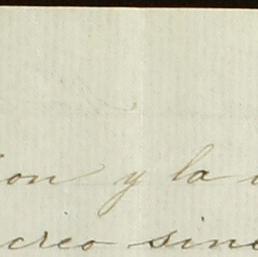 ion y la
creo sine